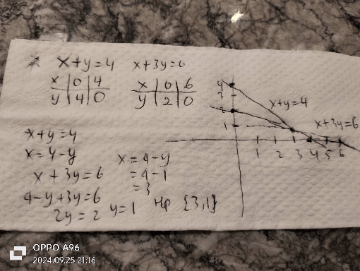 x+y=4 x+3y=6
x | 0 | 4
y | 4 | 0
x | 0 | 6
y | 2 | 0
x+y=4
x=4-y
x+3y=6
4-y+3y=6
2y=2 y=1 Hp {3,1}
x=4-y
=4-1
=3
x+y=4
x+3y=6
4
2
1
1 2 3 4 5 6
OPPO A96
2024.09.25 21:16